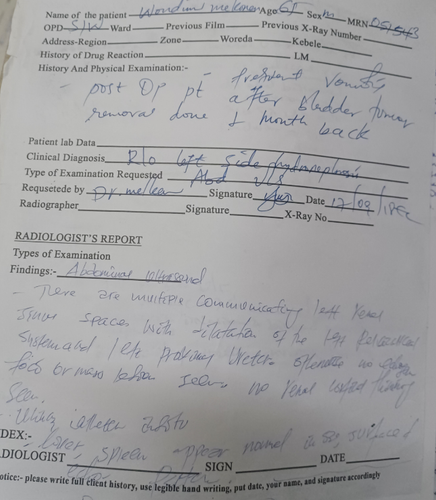 Name of the patient Age 65 Sex M MRN 051543
OPD S/W Ward Previous Film Previous X-Ray Number
Address-Region Zone Woreda Kebele
History of Drug Reaction LM
History And Physical Examination:-
- post OP pt - frequent vomiting
after bladder tumor
removal done 1 month back
Patient lab Data
Clinical Diagnosis R/o left side hydronephrosis
Type of Examination Requested Abd U/S
Requsetede by Dr. Signature Date 12/09/
Radiographer Signature X-Ray No
RADIOLOGIST'S REPORT
Types of Examination
Findings:- Abdominal ultrasound
- There are multiple communicating left renal
sinus spaces with dilatation of the left pelvicalyceal
system and left proximal Ureter. otherwise no
foci or mass lesion seen. no renal
seen.
- Urinary catheter insitu
DEX:-
- liver, spleen appear normal in
DIOLOGIST SIGN DATE
otice:- please write full client history, use legible hand writing, put date, your name, and signature accordingly